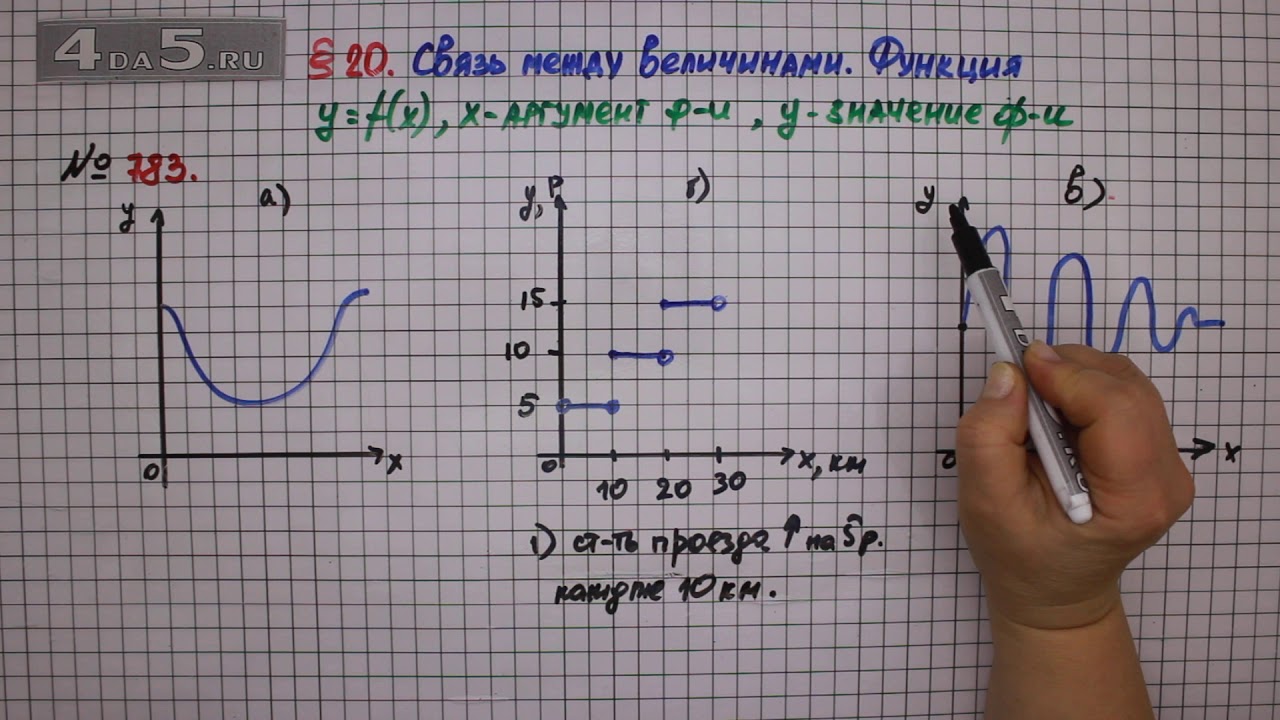 4DA5.RU
§ 20. Связь между величинами. Функция
y = f(x), x-аргумент ф-и, y-значение ф-и
№ 783.
а)
y
0
x
б)
y, р
15
10
5
0
10 20 30
x, км
1) ст-ть проезда ↑ на 5р.
каждые 10 км.
в)
y
0
x